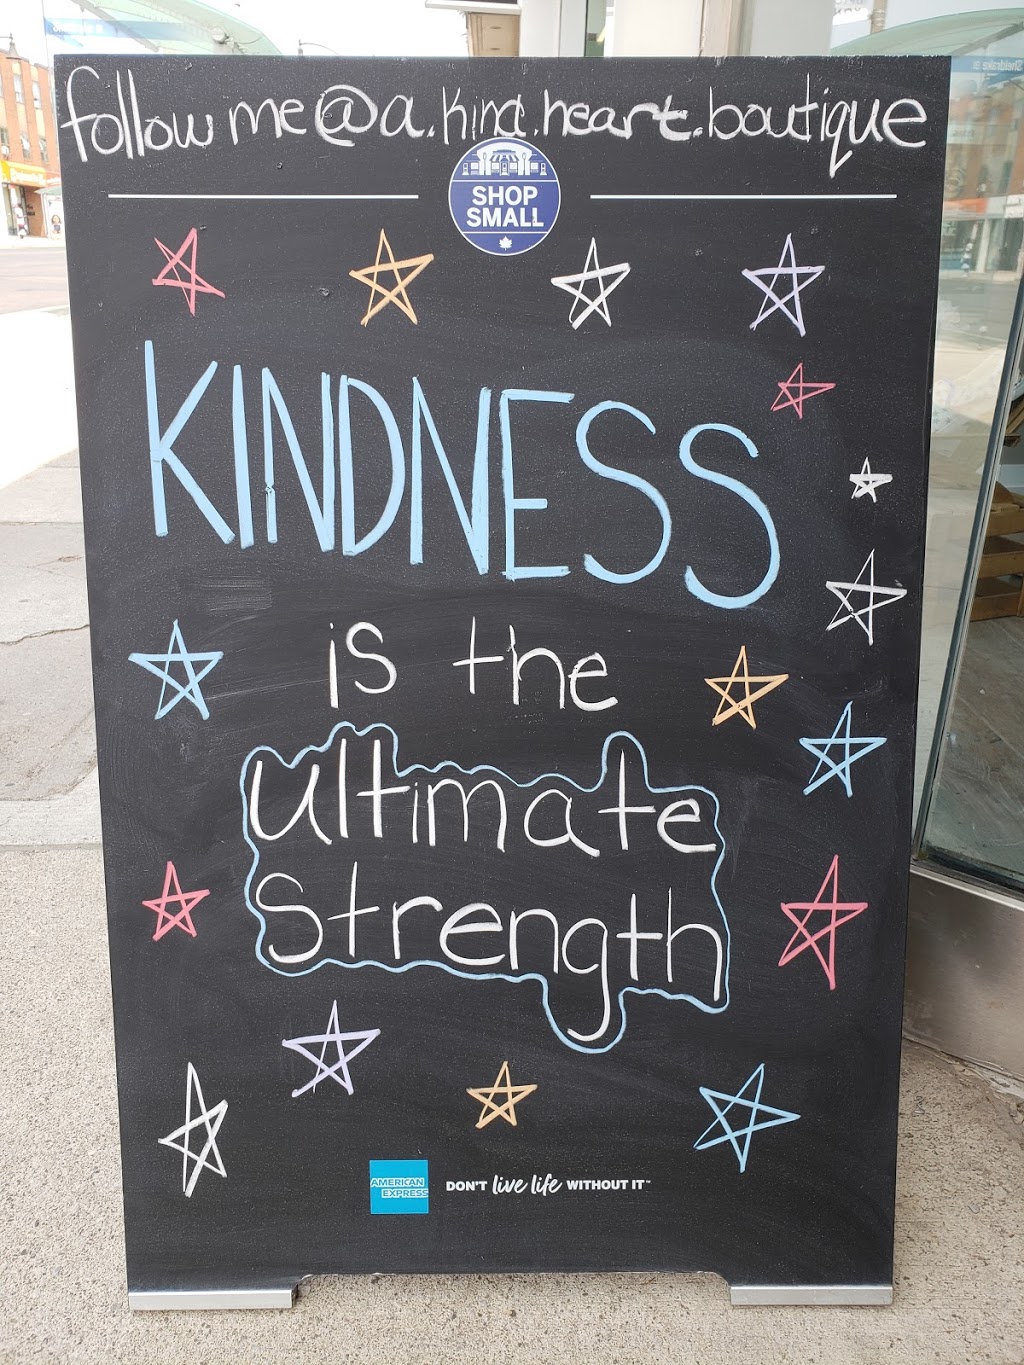 follow me@a.kind.heart.boutique
SHOP
SMALL
KINDNESS
is the
ultimate
Strength
AMERICAN
EXPRESS
DON'T live life WITHOUT IT™